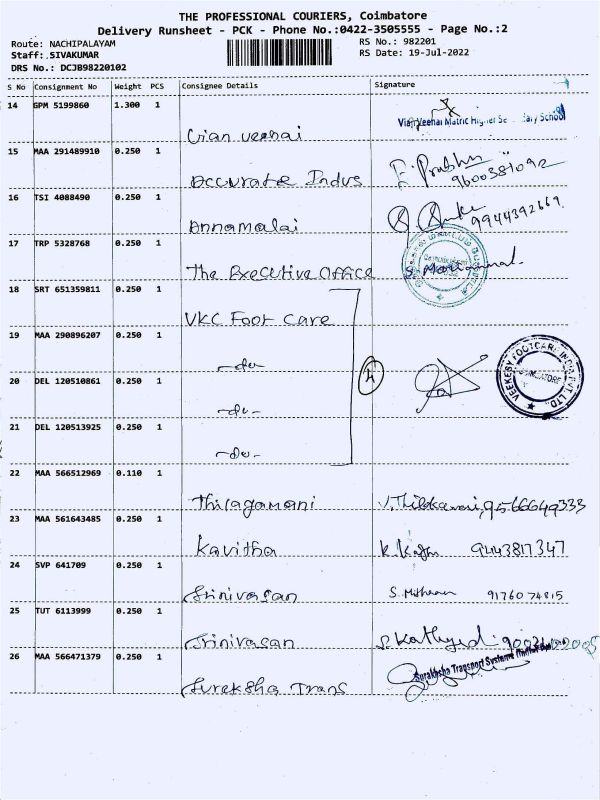 THE PROFESSIONAL COURIERS, Coimbatore
Delivery Runsheet - PCK - Phone No.:0422-3505555 - Page No.:2
Route: NACHIPALAYAM
RS No.: 982201
Staff: SIVAKUMAR
RS Date: 19-Jul-2022
DRS No.: DCJB98220102
S No Consignment No Weight PCS Consignee Details Signature
14 GPM 5199860 1.300 1
Vian Veenai Matric Higher School
Vian veenai
15 MAA 291489910 0.250 1
Accurate Indus E. Prabhu 9600381092
16 TSI 4088490 0.250 1
Annamalai 9944392669
17 TRP 5328768 0.250 1
The Executive Office
18 SRT 651359811 0.250 1
VKC Foot Care
19 MAA 290896207 0.250 1
-do-
20 DEL 120510861 0.250 1
4
VEEKESY FOOTCARE INDIA PVT. LTD.
COIMBATORE
-do-
21 DEL 120513925 0.250 1
-do-
22 MAA 566512969 0.110 1
Thilagamani 9566649333
23 MAA 561643485 0.250 1
Kavitha 9443817347
24 SVP 641709 0.250 1
Srinivasan 9176074815
25 TUT 6113999 0.250 1
Srinivasan
26 MAA 566471379 0.250 1
Surakhsha Transport Systems
Sureksha Trans